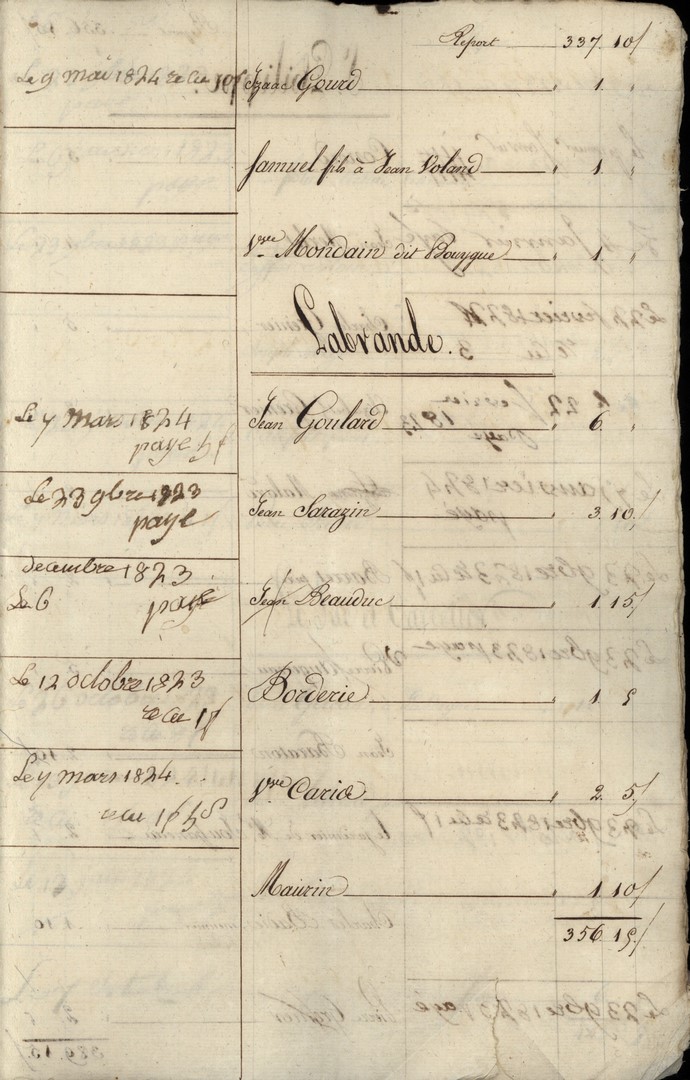 Report 337. 10/
Le 9 mai 1824 recu Izaac Gourd 1. "
Samuel fils à Jean Voland " 1. "
Vve Mondain dit Bouyque " 1. "
Labrande.
Le 7 mars 1824 Jean Goulard " 6. "
paye 5f
Le 23 9bre 1823 Jean Sarazin " 3. 10/
paye
decembre 1823
Le 6 paye Jean Beauduc " 1. 15/
Le 12 octobre 1823 Borderie " 1. 5
recu 1f
Le 7 mars 1824 Vve Carids " 2. 5/
recu 1f 5s
Maurin " 1. 10/
356. 15/